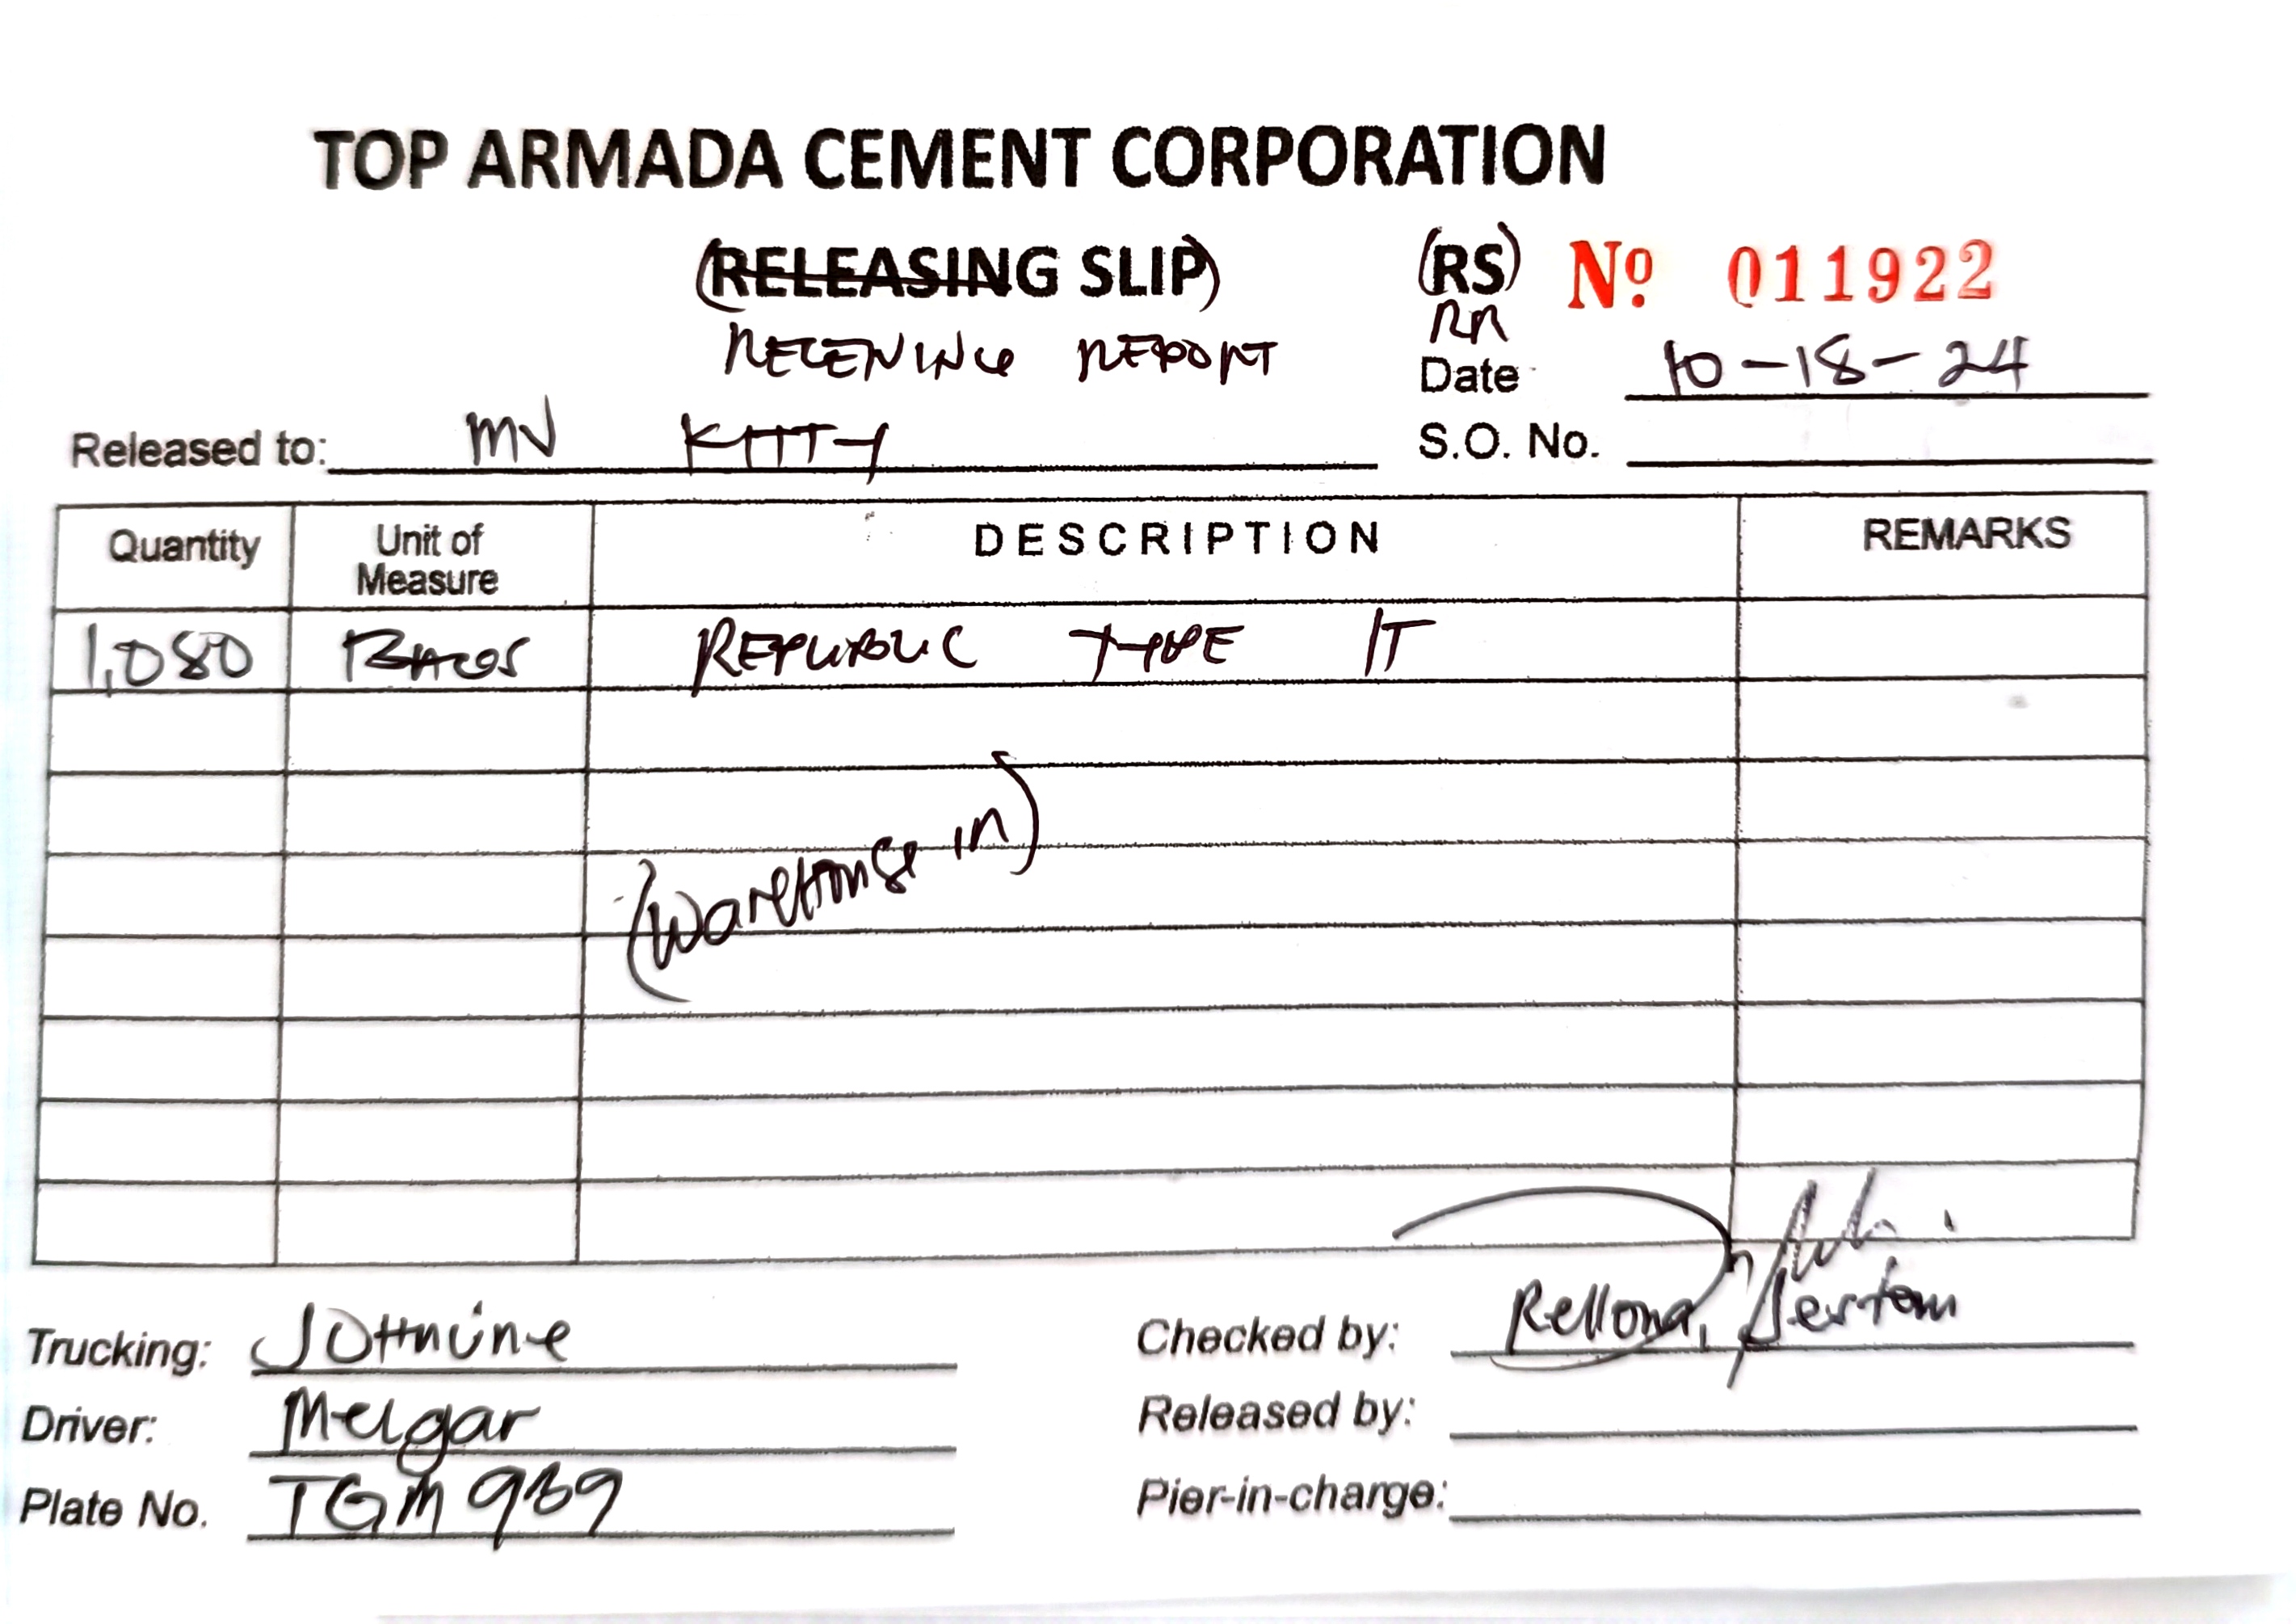 TOP ARMADA CEMENT CORPORATION
(RELEASING SLIP) (RS) Nº 011922
RECEIVING REPORT RR
Date 10-18-24
Released to: MV KITTY S.O. No.
Quantity Unit of Measure DESCRIPTION REMARKS
1,080 BAGS REPUBLIC TYPE IT
(Warehouse in)
Trucking: Johnine Checked by: Rellona,
Driver: Melgar Released by:
Plate No. TGM 989 Pier-in-charge: